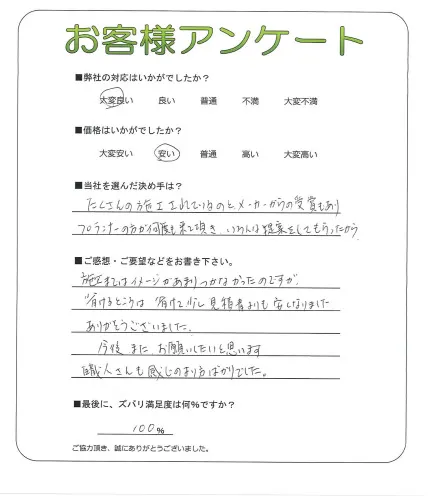 お客様アンケート
■弊社の対応はいかがでしたか?
大変良い 良い 普通 不満 大変不満
■価格はいかがでしたか?
大変安い 安い 普通 高い 大変高い
■当社を選んだ決め手は?
たくさんの施工されているのと、メーカーからの受賞もあり
プランナーの方が何度も来て頂き、いろんな提案をしてもらったから
■ご感想・ご要望などをお書き下さい。
施工まではイメージがあまりつかなかったのですが、
省けるところは省けて少し見積書よりも安くなりました
ありがとうございました。
今後、また、お願いしたいと思います
職人さんも感じのより方ばかりでした。
■最後に、ズバリ満足度は何%ですか?
100%
ご協力頂き、誠にありがとうございました。